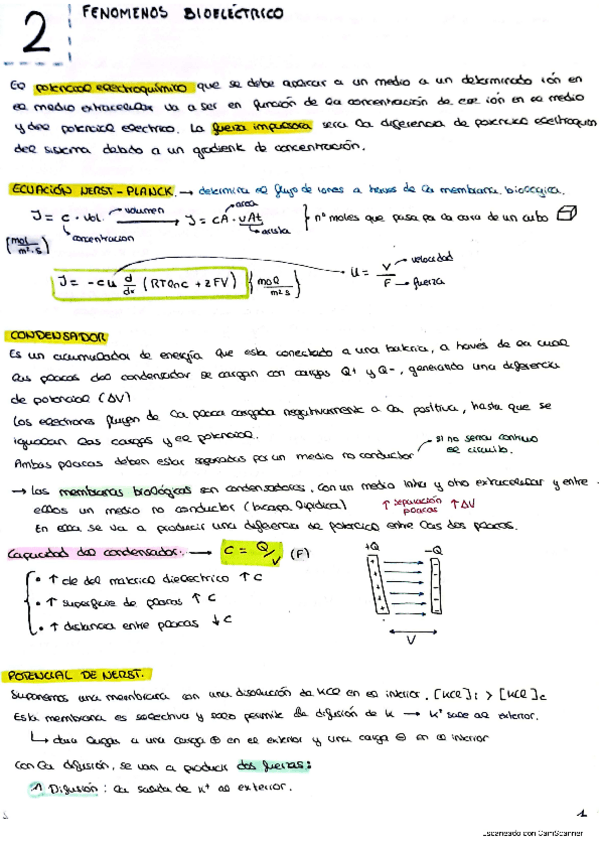 2
FENOMENOS BIOELÉCTRICO
El potencial electroquímico que se debe aplicar a un medio a un determinado ión en
el medio extracelular va a ser en función de la concentración de ese ión en el medio
y del potencial electrico. La fuerza impulsora sera la diferencia de potencial electroquim
del sistema debido a un gradiente de concentración.
ECUACIÓN NERST-PLANCK. → determina el flujo de iones a traves de la membrana biologica.
J = c · vol. → volumen → J = cA · vΔt } nº moles que pasa pa la cara de un cubo
area
arista
concentracion
(mol / m²·s)
J = -cu d/dx (RTlnc + zFV) { mol / m²s } u = V/F → velocidad → fuerza
CONDENSADOR
Es un acumulador de energía que esta conectado a una bateria, a través de la cual
las placas del condensador se cargan con cargas Q+ y Q-, generando una diferencia
de potencial (ΔV)
Los electrones fluyen de la placa cargada negativamente a la positiva, hasta que se
igualan las cargas y el potencial.
Ambas placas deben estar separadas por un medio no conductor → si no seria continuo el circuito.
→ Las membranas biológicas son condensadores, con un medio intra y otro extracelular y entre
ellos un medio no conductor (bicapa lipidica) ↑ separación placas ↑ΔV
En ella se va a producir una diferencia de potencial entre las dos placas.
Capacidad del condensador: → C = Q/V (F)
• ↑ cte del material dielectrico ↑ C
• ↑ superficie de placas ↑ C
• ↑ distancia entre placas ↓ C
+Q -Q
V
POTENCIAL DE NERST.
Suponemos una membrana con una disolución de KCl en el interior. [KCl]i > [KCl]e
Esta membrana es selectiva y solo permite la difusión de K → K⁺ sale al exterior.
↳ dara lugar a una carga ⊕ en el exterior y una carga ⊖ en el interior
Con la difusión, se van a producir dos fuerzas:
1 Difusión: la salida de K⁺ al exterior.
1
Escaneado con CamScanner